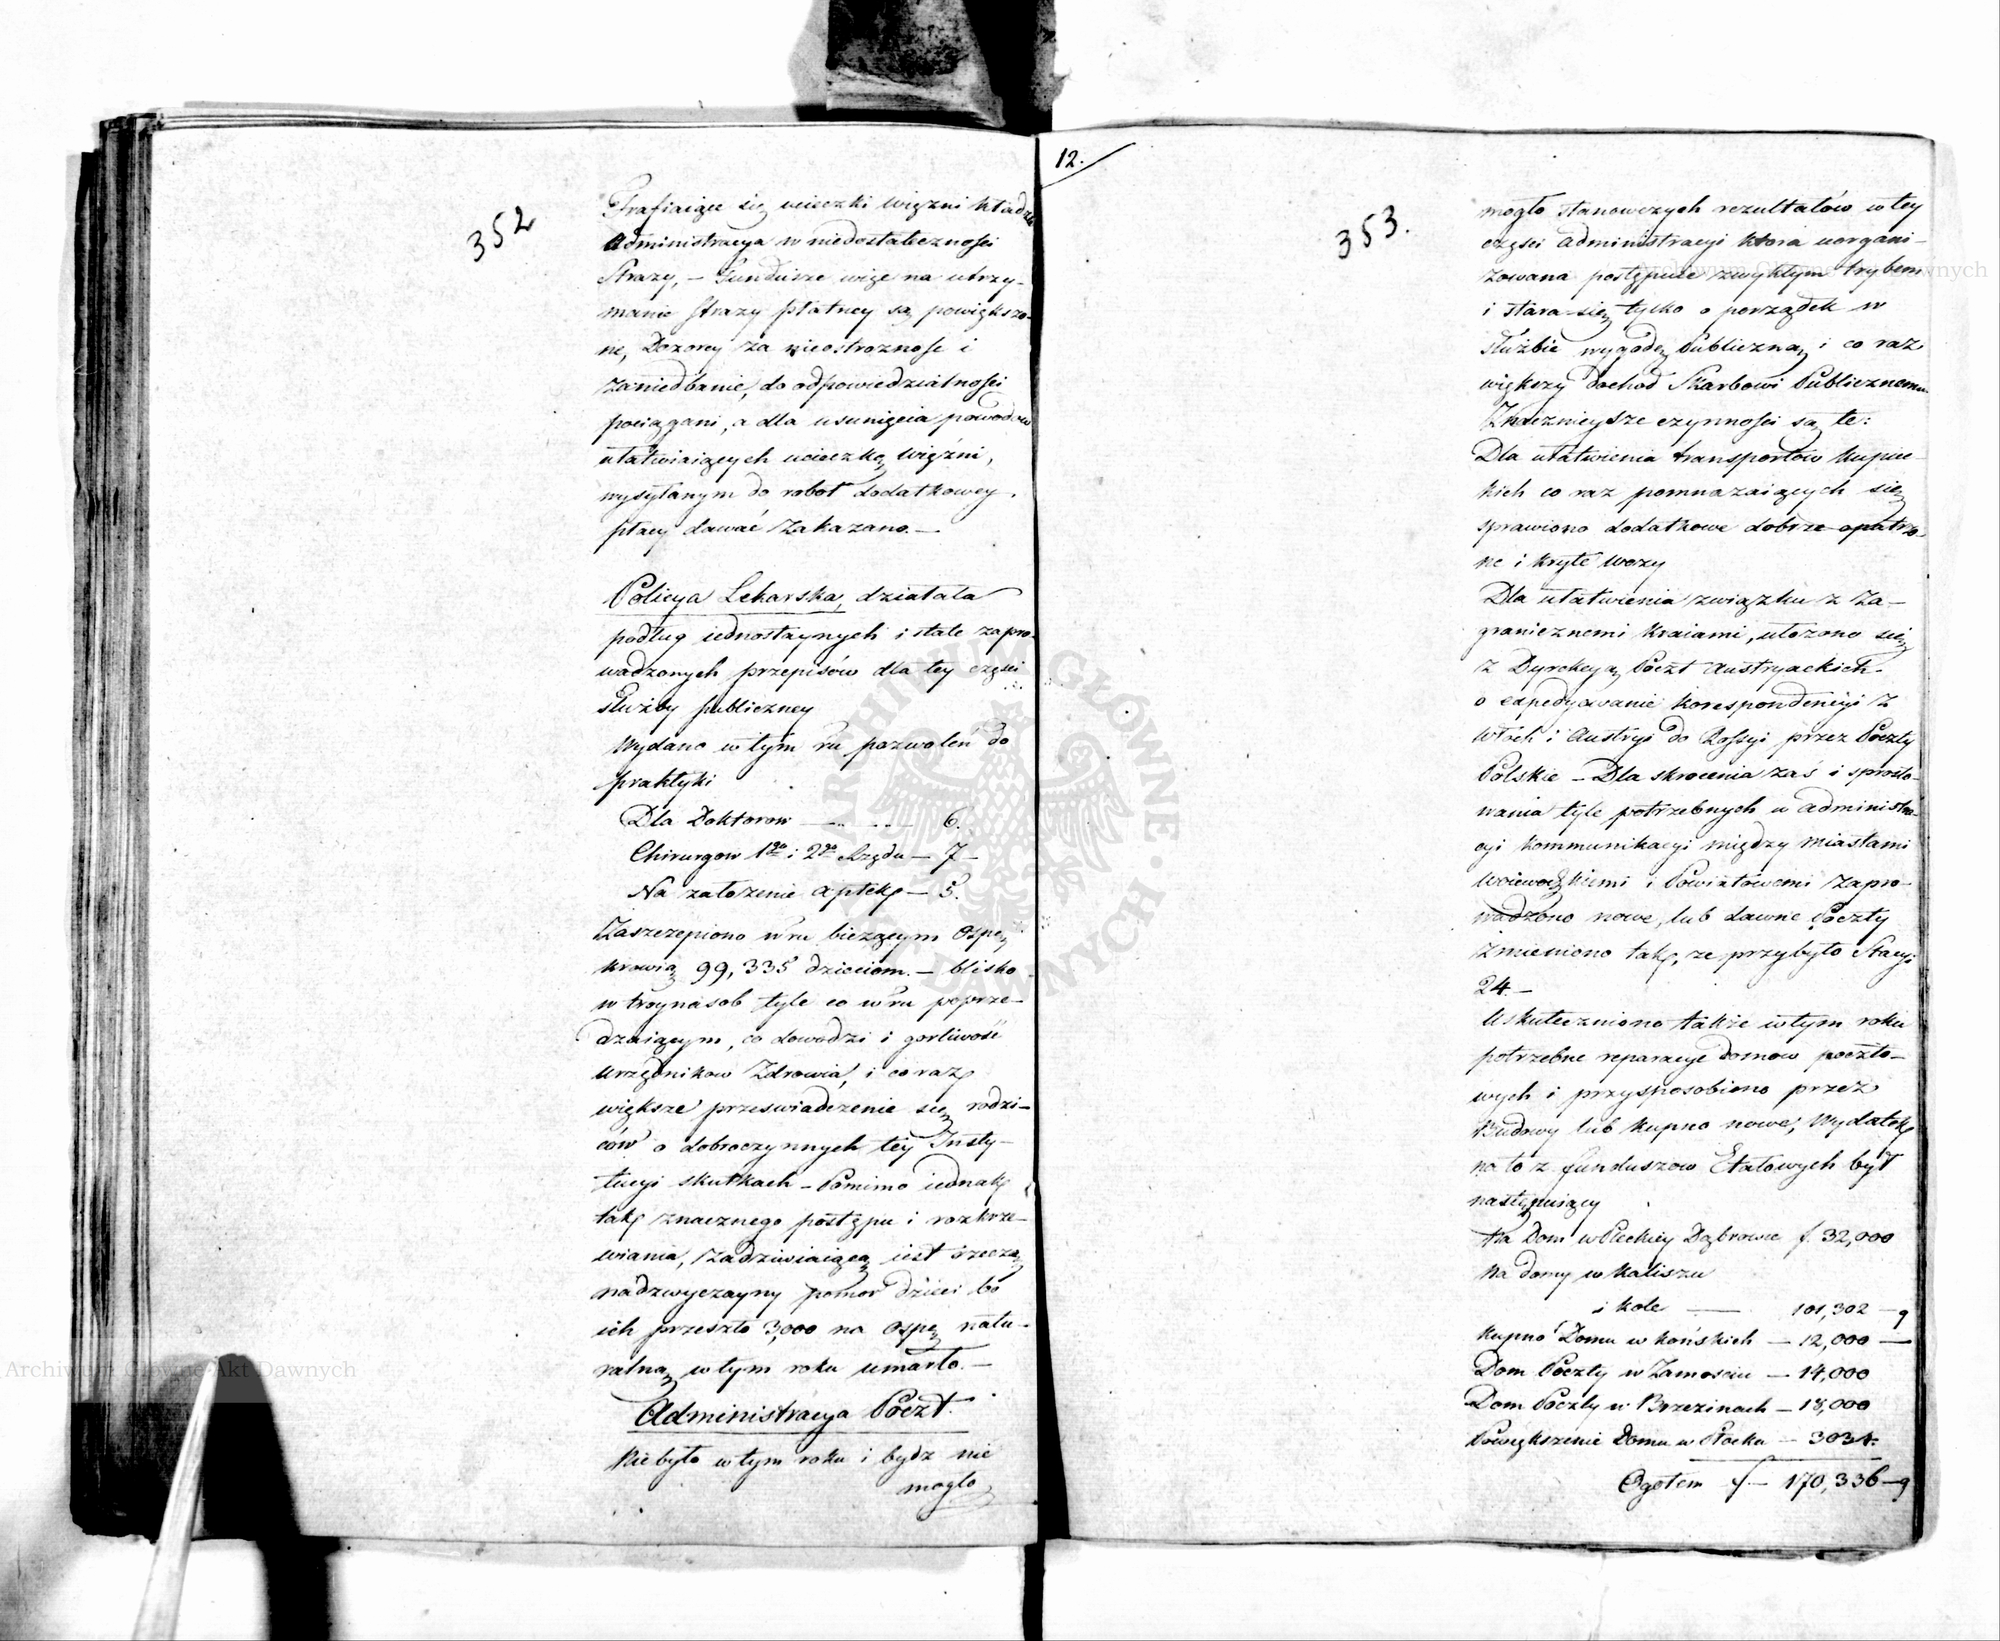 352
Trafiaiące się ucieczki więzni kładzie
Administracya w niedostateczności
Straży, – Fundusze więc na utrzy-
manie straży płatney są powiększo-
ne, Dozorcy za nieostrożność i
zaniedbanie, do odpowiedzialności
pociągani, a dla usunięcia powodow
ułatwiaiących ucieczkę więźni,
wysyłanym do robot dodatkowey
płacy dawać zakazano. –
Policya Lekarska, działała
podług iednostaynych i stale zapro-
wadzonych przepisów dla tey części
służby publiczney
Wydano w tym ru pozwoleń do
praktyki
Dla Doktorow — 6.
Chirurgow 1go i 2go Rzędu — 7 –
Na założenie aptek — 5.
Zaszczepiono w ru bieżącym Ospę
krowią 99,335 dzieciom. – blisko
w troynasob tyle co w ru poprze-
dzaiącym, co dowodzi i gorliwość
urzędnikow Zdrowia, i coraz
większe przeswiadczenie się rodzi-
ców o dobroczynnych tey Insty-
tucyi skutkach – Pomimo iednak
tak znacznego postępu i rozkrze-
wiania, zadziwiaiącą iest rzeczą
nadzwyczayny pomor dzieci bo
ich przeszło 3,000 na Ospę natu-
ralną w tym roku umarło. –
Administracya Poczt.
Nie było w tym roku i bydz nie
mogło
12.
353.
mogło stanowczych rezultatów w tey
części administracyi ktora uorgani-
zowana postępuie zwykłym trybem
i stara się tylko o porządek w
służbie wygodę Publiczną i co raz
większy dochod Skarbowi Publicznemu
Znacznieysze czynności są te:
Dla ułatwienia transportów kupie-
kich co raz pomnażaiących się
sprawiono dodatkowe dobrze opatrzo-
ne i kryte wozy
Dla ułatwienia związku z Za-
granicznemi kraiami, ułożono się
z Dyrekcyą Poczt Austryackich
o expedyowanie korespondencyi z
Włoch i Austryi do Rossyi przez Poczty
Polskie – Dla skrocenia zaś i sprosto-
wania tyle potrzebnych w administra-
cyi kommunikacyi między miastami
Woiewodzkiemi i Powiatowemi zapro-
wadzono nowe, lub dawne Poczty
zmieniono tak, ze przybyło Stacyi
24. –
Uskuteczniono także w tym roku
potrzebne reparacye domow poczto-
wych i przysposobiono przez
Budowy lub kupno nowe; Wydatek
na to z funduszow Etatowych był
następuiący
Na Dom w Dąbrowie f. 32,000
Na domy w Kaliszu
i Kole — 101,302 – 9
Kupno Domu w Końskich — 12,000 —
Dom Poczty w Zamościu — 14,000
Dom Poczty w Brzezinach — 18,000
Powiększenie Domu w Płocku — 3034.
Ogołem f — 170,336 – 9
Archiwum Główne Akt Dawnych
Archiwum Główne Akt Dawnych
ARCHIWUM GŁÓWNE AKT DAWNYCH